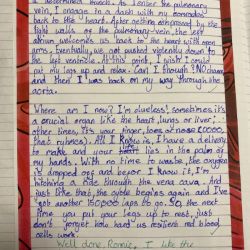 a determined truck. As I enter the pulmonary
vein, I reason to a dash with my
After getting compressed by the
tight walls of the pulmonary vein, the left
atrium welcomes us back to the heart with open
arms. Eventually, we got pushed violently down to
the left ventricle. At this point, I wish I could
put my legs up and relax. Can I though? NO
and then I was back on my way through the
aorta.
Where am I now? I'm clueless! Sometimes it's
a crucial organ like the heart, lungs or liver;
other times, it's your finger, toes or nose (0000,
that rhymes). All I know is, I have a delivery
to make and your lies in the palm of
my hands. With no time to waste, the oxygen
is dropped off and before I know it, I'm
hitching a ride through the vena cava. And
just like that, the cycle begins again and I've
got another 150000 laps to go. So, the next
time you put your legs up to rest, just
don't forget how hard us resilient red blood
cells work.
Well done I like the